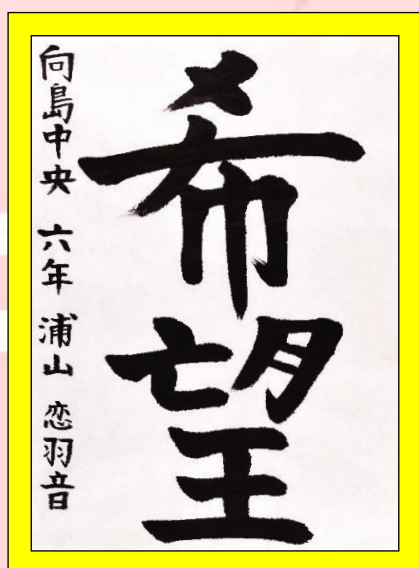 希望
向島中央 六年 浦山 恋羽音